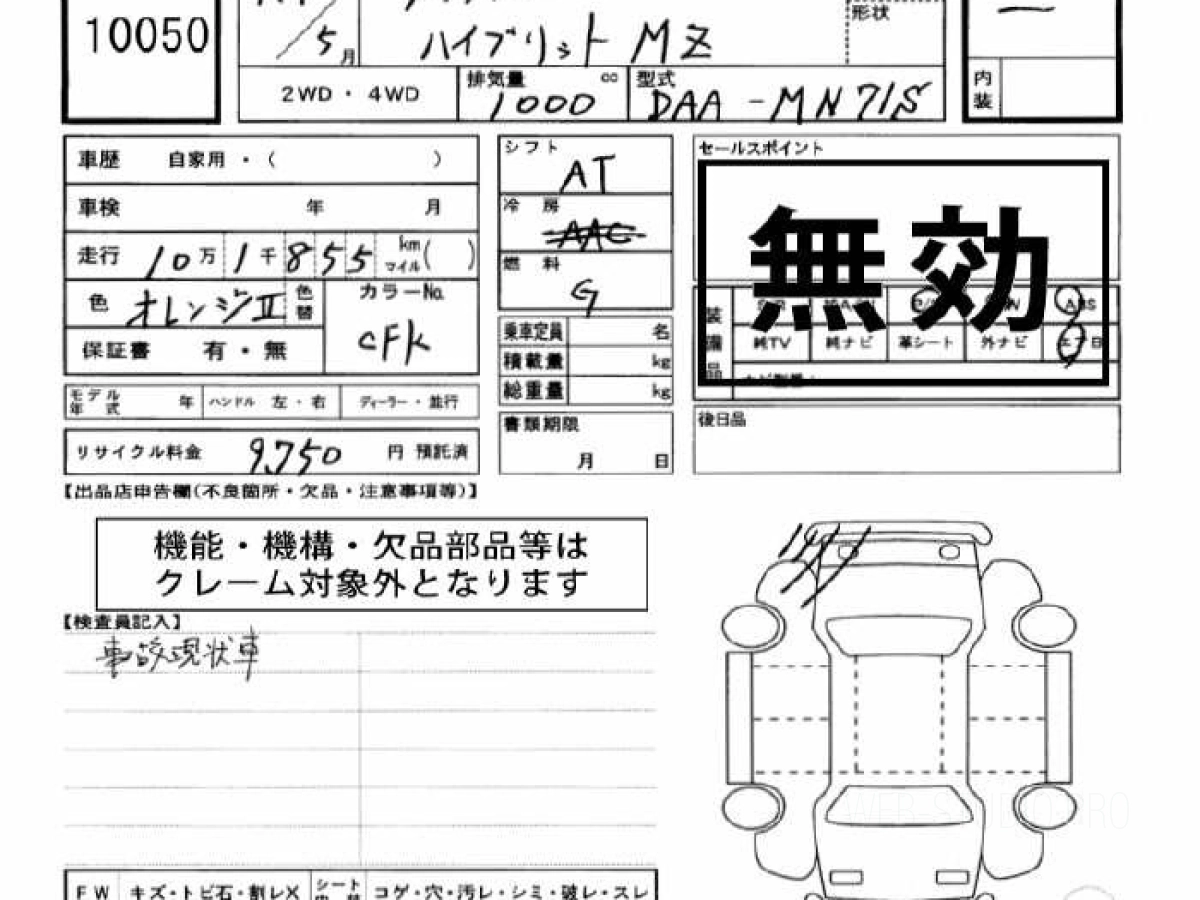 10050
5月
ハイブリット MZ
形状
2WD・4WD
排気量 1000 cc
型式 DAA-MN71S
内装
車歴 自家用・( )
車検 年 月
走行 10万1千855 km マイル( )
色 オレンジⅡ 色替
カラーNo. CFK
保証書 有・無
モデル年式 年 ハンドル 左・右 ディーラー・並行
リサイクル料金 9,750 円 預託済
シフト AT
冷房 AAC
燃料 G
乗車定員 名
積載量 kg
総重量 kg
書類期限 月 日
セールスポイント
無効
装備品 ABS
純TV 純ナビ 革シート 外ナビ エアB
後日品
【出品店申告欄(不良箇所・欠品・注意事項等)】
機能・機構・欠品部品等は
クレーム対象外となります
【検査員記入】
事故現状車
FW キズ・トビ石・割レX シート コゲ・穴・汚レ・シミ・破レ・スレ